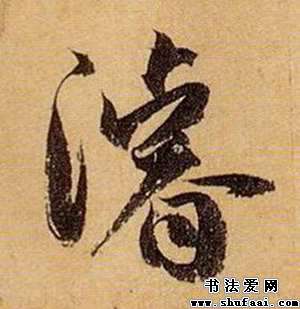 濬
书法爱网
www.shufaai.com